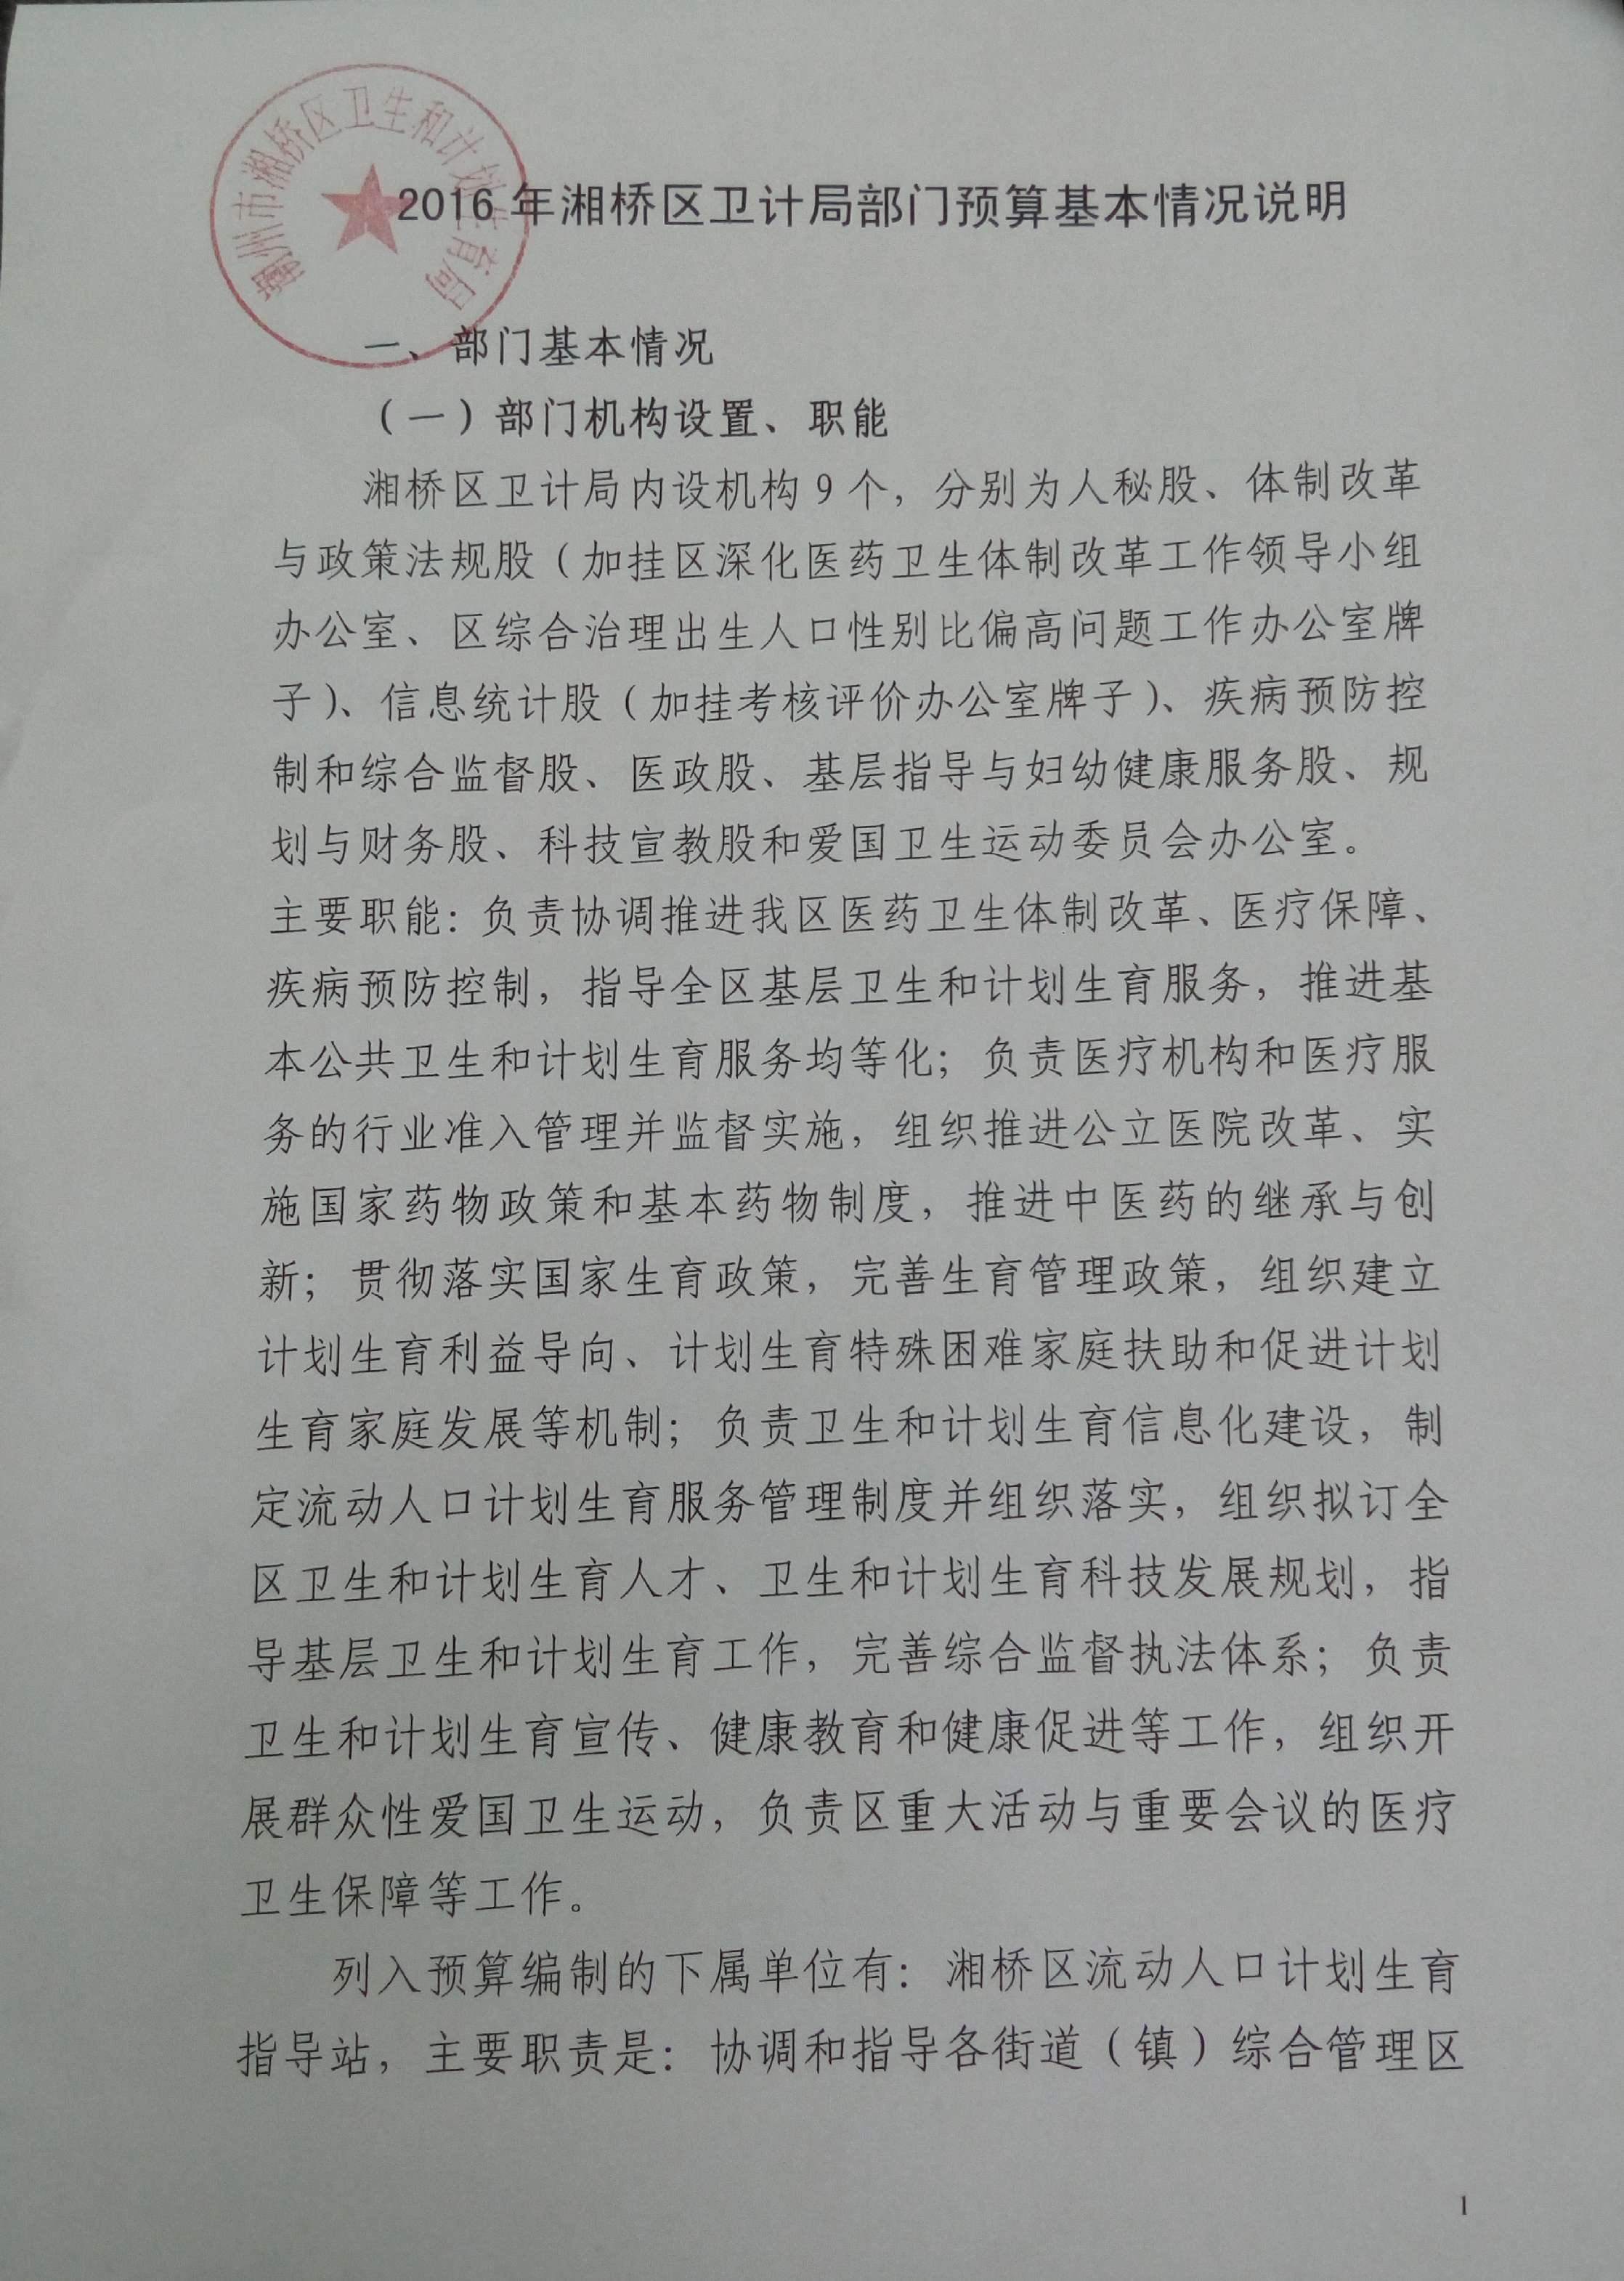 潮州市湘桥区卫生和计划生育局
2016年湘桥区卫计局部门预算基本情况说明
一、部门基本情况
（一）部门机构设置、职能
湘桥区卫计局内设机构9个，分别为人秘股、体制改革
与政策法规股（加挂区深化医药卫生体制改革工作领导小组
办公室、区综合治理出生人口性别比偏高问题工作办公室牌
子）、信息统计股（加挂考核评价办公室牌子）、疾病预防控
制和综合监督股、医政股、基层指导与妇幼健康服务股、规
划与财务股、科技宣教股和爱国卫生运动委员会办公室。
主要职能：负责协调推进我区医药卫生体制改革、医疗保障、
疾病预防控制，指导全区基层卫生和计划生育服务，推进基
本公共卫生和计划生育服务均等化；负责医疗机构和医疗服
务的行业准入管理并监督实施，组织推进公立医院改革、实
施国家药物政策和基本药物制度，推进中医药的继承与创
新；贯彻落实国家生育政策，完善生育管理政策，组织建立
计划生育利益导向、计划生育特殊困难家庭扶助和促进计划
生育家庭发展等机制；负责卫生和计划生育信息化建设，制
定流动人口计划生育服务管理制度并组织落实，组织拟订全
区卫生和计划生育人才、卫生和计划生育科技发展规划，指
导基层卫生和计划生育工作，完善综合监督执法体系；负责
卫生和计划生育宣传、健康教育和健康促进等工作，组织开
展群众性爱国卫生运动，负责区重大活动与重要会议的医疗
卫生保障等工作。
列入预算编制的下属单位有：湘桥区流动人口计划生育
指导站，主要职责是：协调和指导各街道（镇）综合管理区
1